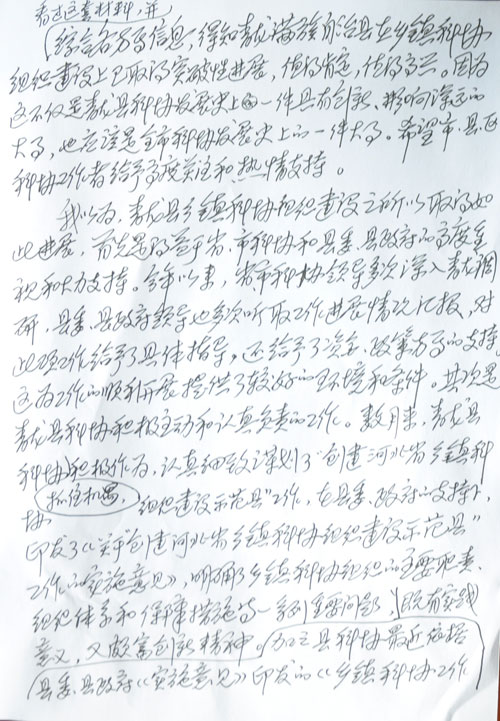 看过这套材料，并
综合各方面信息，得知青龙满族自治县在乡镇科协
组织建设上已取得突破性进展，值得肯定，值得高兴。因为
这不仅是青龙县科协发展史上的一件具有创新、影响深远的
大事，也应该是全市科协发展史上的一件大事。希望市、县区
科协工作者给予高度关注和热情支持。
我以为，青龙县乡镇科协组织建设之所以取得如
此进展，首先得益于省、市科协和县委、县政府的高度重
视和大力支持。今年以来，省市科协领导多次深入青龙调
研，县委、县政府领导也多次听取工作进展情况汇报，对
此项工作给予了具体指导，还给予了资金、政策方面的支持，
这为工作的顺利开展提供了较好的环境和条件。其次是
青龙县科协积极主动和认真负责的工作。数月来，青龙县
科协积极作为，认真细致谋划了“创建河北省乡镇科
抓住机遇，
协组织建设示范县”工作，在县委、政府的支持下，
印发了《关于创建河北省乡镇科协组织建设示范县”
工作的实施意见》，明确了乡镇科协组织的主要职责、
组织体系和保障措施等一系列重要问题，既有实践
意义，又颇富创新精神。加之县科协最近依据
县委、县政府《实施意见》印发的《乡镇科协工作